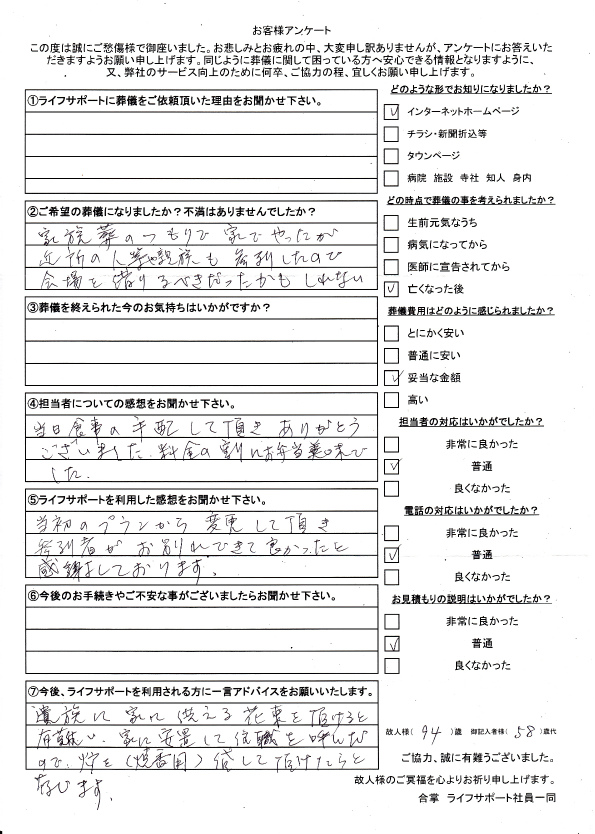 お客様アンケート
この度は誠にご愁傷様で御座いました。お悲しみとお疲れの中、大変申し訳ありませんが、アンケートにお答えいた
だきますようお願い申し上げます。同じように葬儀に関して困っている方へ安心できる情報となりますように、
又、弊社のサービス向上のために何卒、ご協力の程、宜しくお願い申し上げます。
①ライフサポートに葬儀をご依頼頂いた理由をお聞かせ下さい。
②ご希望の葬儀になりましたか？不満はありませんでしたか？
家族葬のつもりで家でやったが
近所の人等や親族も参列したので
会場を借りるべきだったかもしれない
③葬儀を終えられた今のお気持ちはいかがですか？
④担当者についての感想をお聞かせ下さい。
当日食事の手配して頂きありがとう
ございました。料金の割にお弁当美味で
した。
⑤ライフサポートを利用した感想をお聞かせ下さい。
当初のプランから変更して頂き
参列者がお別れできて良かったと
感謝しております。
⑥今後のお手続きやご不安な事がございましたらお聞かせ下さい。
⑦今後、ライフサポートを利用される方に一言アドバイスをお願いいたします。
遺族に家に供える花束を頂けると
有難い、家に安置して住職を呼んだ
ので、炉を（焼香用）貸して頂けたらと
存じます。
どのような形でお知りになりましたか？
インターネットホームページ
チラシ・新聞折込等
タウンページ
病院 施設 寺社 知人 身内
どの時点で葬儀の事を考えられましたか？
生前元気なうち
病気になってから
医師に宣告されてから
亡くなった後
葬儀費用はどのように感じられましたか？
とにかく安い
普通に安い
妥当な金額
高い
担当者の対応はいかがでしたか？
非常に良かった
普通
良くなかった
電話の対応はいかがでしたか？
非常に良かった
普通
良くなかった
お見積もりの説明はいかがでしたか？
非常に良かった
普通
良くなかった
故人様（94）歳 御記入者様（58）歳代
ご協力、誠に有難うございました。
故人様のご冥福を心よりお祈り申し上げます。
合掌 ライフサポート社員一同